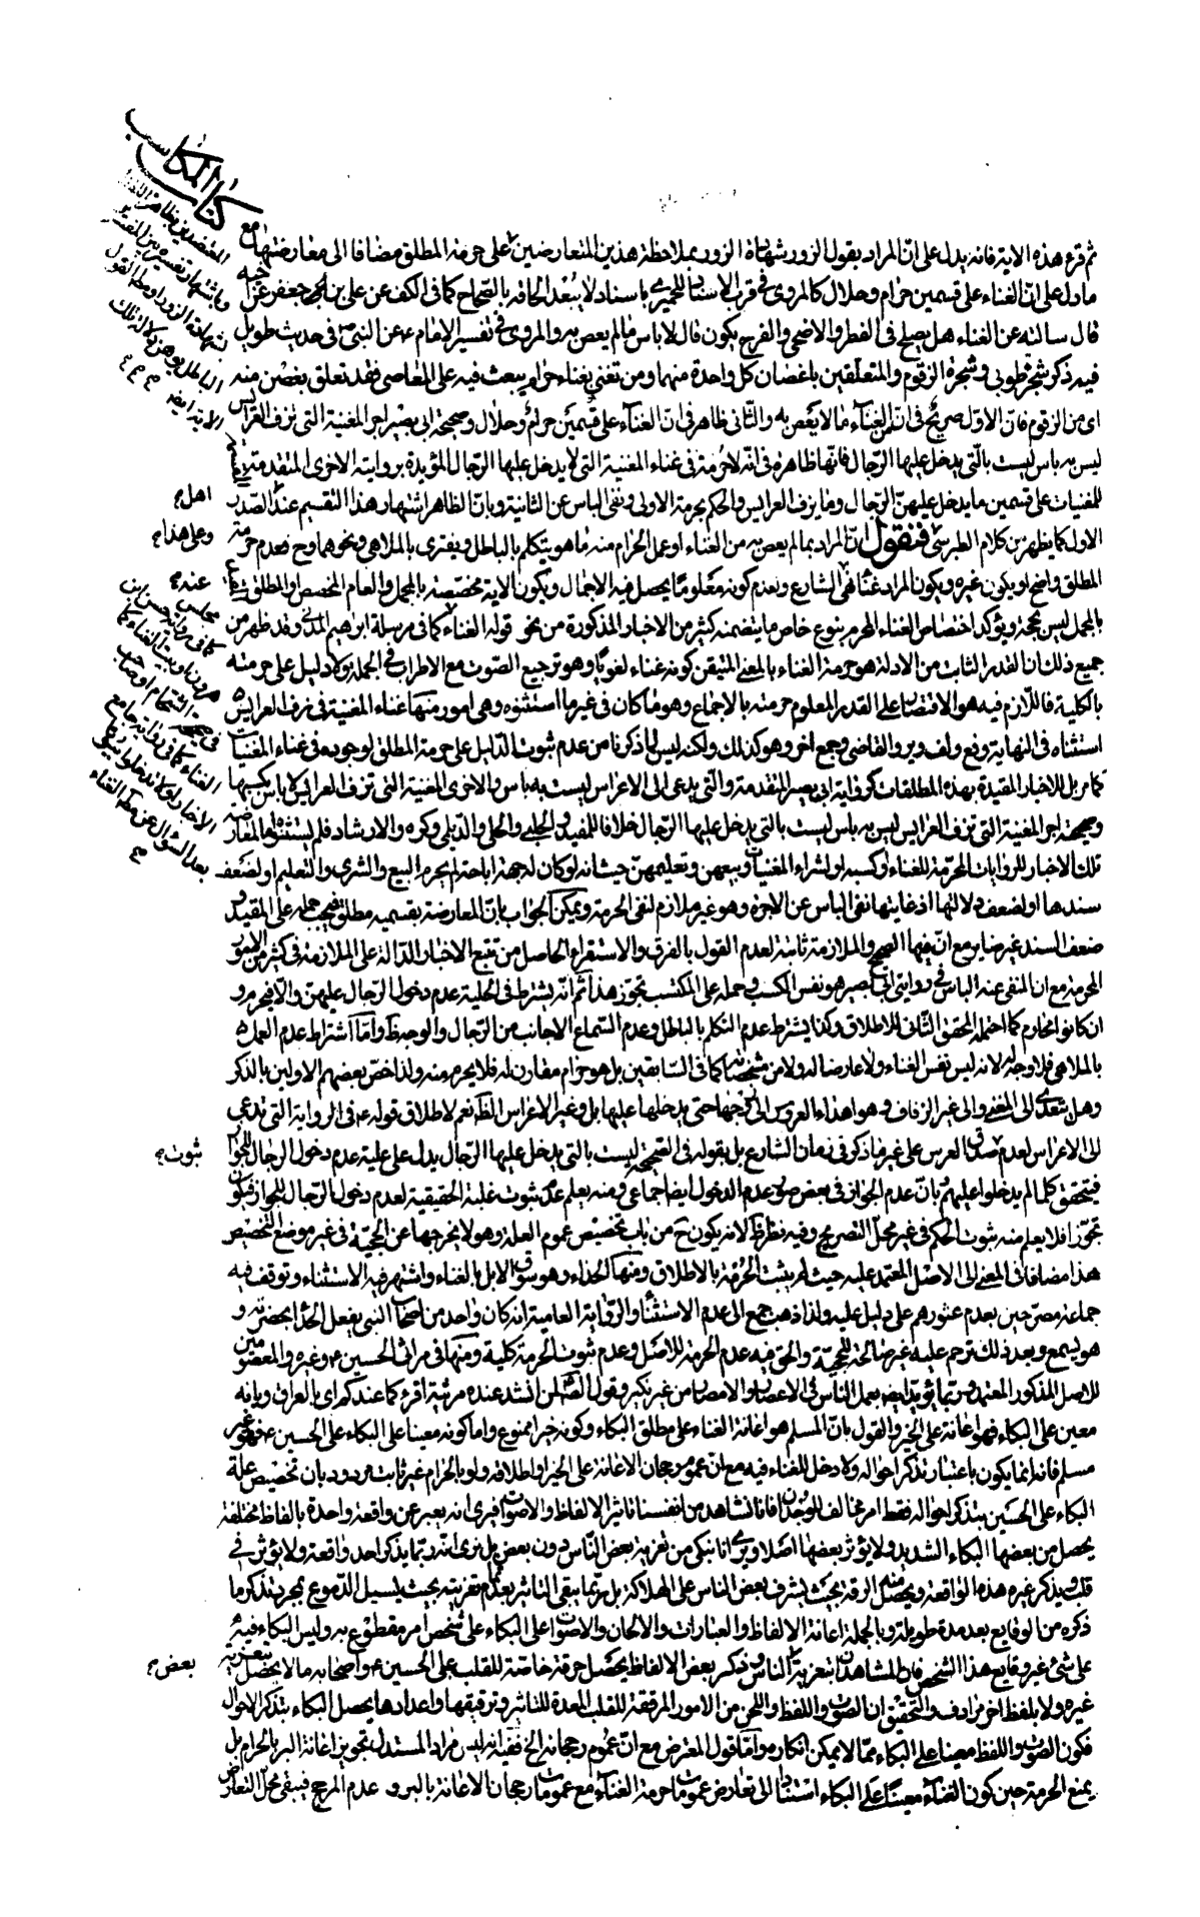 كتاب المكاسب
ثم قرء هذه الاية فانه يدل على ان المراد بقول الزور شهادة الزور بملاحظة هذين المتعارضين على حرمة المطلق مضافا الى معارضتها مع
ما دل على ان الغناء على قسمين حرام وحلال كالمروى فى قرب الاسناد للحميرى باسناد لا يبعد الحاقه بالصحاح كما فى الكف عن على بن جعفر عن اخيه
قال سالته عن الغناء هل يصلح فى الفطر والاضحى والفرح يكون قال لا باس ما لم يعص به والمروى فى تفسير الامام ع عن النبى ص فى حديث طويل
فيه ذكر شجرة طوبى وشجرة الزقوم والمتعلقين باغصان كل واحدة منهما ومن تغنى بغناء حرام يبعث فيه على المعاصى فقد تعلق بغصن منه
اى من الزقوم فان الاول صريح فى ان من الغناء ما لا يعص به والثانى ظاهر فى ان الغناء على قسمين حرام وحلال وصحيحة ابى بصير اجر المغنية التى تزف العرايس
ليس به باس ليست بالتى يدخل عليها الرجال فانها ظاهرة فى انه لا حرمة فى غناء المغنية التى لا يدخل عليها الرجال المؤيدة بروايته الاخرى المتقدمة
للمغنيات على قسمين ما يدخل عليهن الرجال وما يزف العرايس والحكم بحرمة الاولى ونفى الباس عن الثانية وبان الظاهر اشتهار هذا التقسيم عند الصدر
الاول كما يظهر من كلام الطبرسى فنقول ان المراد بما لم يعص به من الغناء او عمل الحرام منه ما هو يتكلم بالباطل ويقترن بالملاهى ونحوهما وح فعدم حرمة
المطلق واضح او يكون غيره ويكون المراد غناء نهى الشارع ولعدم كونه معلوما يحصل فيه الاجمال ويكون الاية مخصصة بالمجمل والعام المخصص او المطلق
بالمجمل ليس بحجة ويؤكد اختصاص الغناء المحرم بنوع خاص ما يتضمنه كثير من الاخبار المذكورة من نحو قوله الغناء كما فى مرسلة ابراهيم المدنى وقد ظهر من
جميع ذلك ان القدر الثابت من الادلة هو حرمة الغناء بالمعنى المتيقن كونه غناء لغويا وهو ترجيع الصوت مع الاطراب فى الجملة ولا دليل على حرمته
بالكلية فاللازم فيه هو الاقتصار على القدر المعلوم حرمته بالاجماع وهو ما كان فى غير ما استثنوه وهى امور منها غناء المغنية فى زف العرايس
استثناه فى النهاية وفع ولف وير والقاضى وجمع اخر وهو كذلك ولكنه ليس لما ذكرنا من عدم ثبوت الدليل على حرمة المطلق لوجوبه فى غناء المغنيات
كما مر بل للاخبار المقيدة بهذه المطلقات كرواية ابى بصير المتقدمة والتى يدعى الى الاعراس ليست به باس والاخرى المغنية التى تزف العرايس لا باس بكسبها
وصحيحة اجر المغنية التى تزف العرايس ليس به باس ليست بالتى يدخل عليها الرجال خلافا للمفيد والحلبى والحلى والديلمى وكره والارشاد فلم يستثنوه لمعارضة
تلك الاخبار للروايات المحرمة للغناء او كسبه او لشراء المغنيات وبيعهن وتعليمهن حيث انه لو كان لجهة اباحة لم يحرم البيع والشرى والتعليم او لضعف
سندها او لضعف دلالتها اذ غايتها نفى الباس عن الاجرة وهو غير ملازم لنفى الحرمة ويمكن الجواب بان المعارضة بقسميه مطلق فيجب حمله على المقيد و
ضعف السند غير ضاير مع ان فيها الصحيح والملازمة ثابتة لعدم القول بالفرق والاستقراء الحاصل من تتبع الاخبار الدالة على الملازمة فى كثير من الامور
المحرمة مع ان المنفى عنه الباس فى روايتى ابى بصير هو نفس الكسب وحمله على المكتسب تجوز هذا ثم انه يشترط فى الحلية عدم دخول الرجال عليهن والا فيحرم و
ان كانوا محارم كما احتمله المحقق الثانى للاطلاق وكذا يشترط عدم التكلم بالباطل وعدم استماع الاجانب من الرجال والوجه ظ واما اشتراط عدم العمل
بالملاهى فلا وجه له لانه ليس نفس الغناء ولا عارضا له ولا من مشخصاته كما فى السابقين بل هو حرام مقارن له فلا يحرم منه ولذا خص بعضهم الاولين بالذكر
وهل يتعدى الى المغنى والى غير الزفاف وهو اهداء العروس الى زوجها حتى يدخلها عليها بل وغير الاعراس الظ نعم لاطلاق قوله ع فى الرواية التى تدعى
الى الاعراس لعدم صدق العرس على غير ما ذكر فى زمان الشارع بل بقوله فى الصحيحة ليست بالتى يدخل عليها الرجال يدل على علية عدم دخول الرجال للجواز
فيتحقق كلما لم يدخلوا عليهم بان عدم الجواز فى بعض صور عدم الدخول ايضا اجماعى ومنه يعلم عدم ثبوت علية الحقيقية لعدم دخول الرجال للجواز فيكون
تجوزا فلا يعلم منه ثبوت الحكم فى غير محل التصريح وفيه نظر ظ لانه يكون ح من باب تخصيص عموم العلة وهو لا يخرجها عن الحجية فى غير موضع التخصيص
هذا مضافا فى المغنى الى الاصل المعتمد عليه حيث لم يثبت الحرمة بالاطلاق ومنها الحداء وهو سوق الابل بالغناء واشتهر فيه الاستثناء وتوقف فيه
جماعة مصرحين بعدم عثورهم على دليل عليه ولذا ذهب جمع الى عدم الاستثناء والرواية العامية انه كان واحد من اصحاب النبى يفعل الحدا بحضرته و
هو يسمع وبعد ذلك ترحم عليه غير صالحة للحجية والحق فيه عدم الحرمة للاصل وعدم ثبوت الحرمة كلية ومنها فى مراثى الحسين ع وغيره والمعصومين
للاصل المذكور المعتمد وربما يؤيد ايضا بعمل الناس فى الاعصار والامصار من غير نكير وقول الص لمن انشد عنده مرثية اقرء كما عندكم اى بالعراق وبانه
معين على البكاء فهو اعانة على الخير والقول بان المسلم هو اعانة الغناء على مطلق البكاء وكونه خيرا ممنوع واما كونه معينا على البكاء على الحسين ع فهو غير
مسلم فانه انما يكون باعتبار تذكر احواله ولا دخل للغناء فيه مع ان عموم رجحان الاعانة على الخير واطلاقه ولو بالحرام غير ثابت مردود بان تخصيص علة
البكاء على الحسين بتذكر احواله فقط امر مخالف للوجدان فانا نشاهد من انفسنا تاثير الالفاظ والاصوات فيرى انه يعبر عن واقعة واحدة بالفاظ مختلفة
يحصل من بعضها البكاء الشديد ولا يؤثر بعضها اصلا ويرى انا نبكى من تعزية بعض الناس دون بعض بل نرى انه ربما يذكر احد واقعة ولا يؤثر فى
قلب ويذكر غيره هذه الواقعة ويحصل منه الرقة بحيث يشرف بعض الناس على الهلاكة بل ربما يبقى التاثير بعد تمام تعزيته بحيث يسيل الدموع بمجرد تذكر ما
ذكره من الوقايع بعد مدة طويلة وبالجملة اعانة الالفاظ والعبارات والالحان والاصوات على البكاء على شخص امر مقطوع به وليس البكاء فيه
على شئ غير وقايع هذا الشخص فان المشاهد ان بتعزية الناس وذكر بعض الالفاظ يحصل حرقة خاصة للقلب على الحسين ع واصحابه ما لا يحصل بتعزية
غيره ولا بلفظ اخر مرادف والتحقيق ان الصوت واللفظ واللحن من الامور المرققة للقلب المعدة للتاثير وترقيقها واعدادها يحصل البكاء بتذكر الاحوال
فكون الصوت واللفظ معينا على البكاء مما لا يمكن انكاره واما قول المعرض مع ان عموم رجحانه الخ ففيه انه ليس مراد المستدل تجويز اعانة البر بالحرام بل
يمنع الحرمة حين كون الغناء معينا على البكاء استنادا الى تعارض عمومات حرمة الغناء مع عمومات رجحان الاعانة بالبر و عدم المرجح فيبقى محل التعارض
اهل
وعلى هذا
عنده
ثبوت
بعض